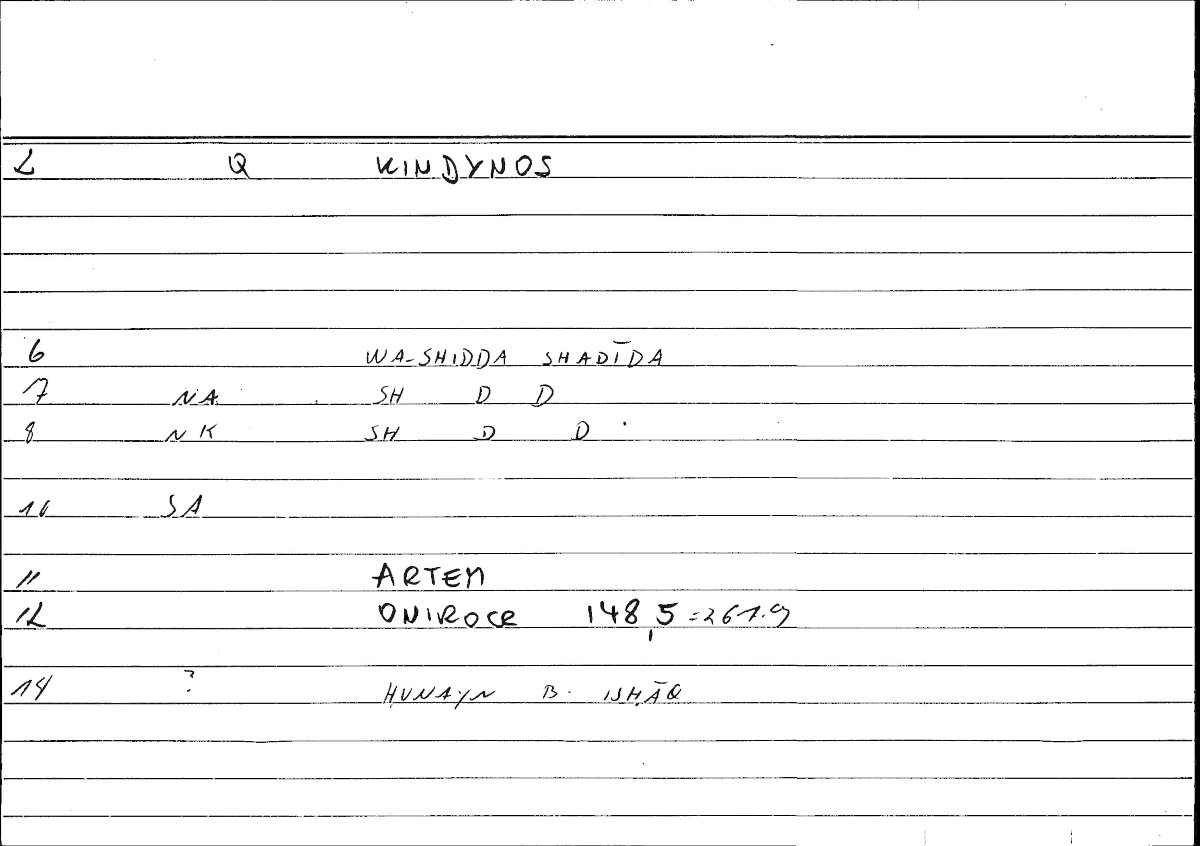 2 Q KINDYNOS
6 WA-SHIDDA SHADĪDA
7 NA SH D D
8 NK SH D D
10 SA
11 ARTEM
12 ONIROCR 148,5 = 261.9
14 ? ḤUNAYN B. ISḤĀQ